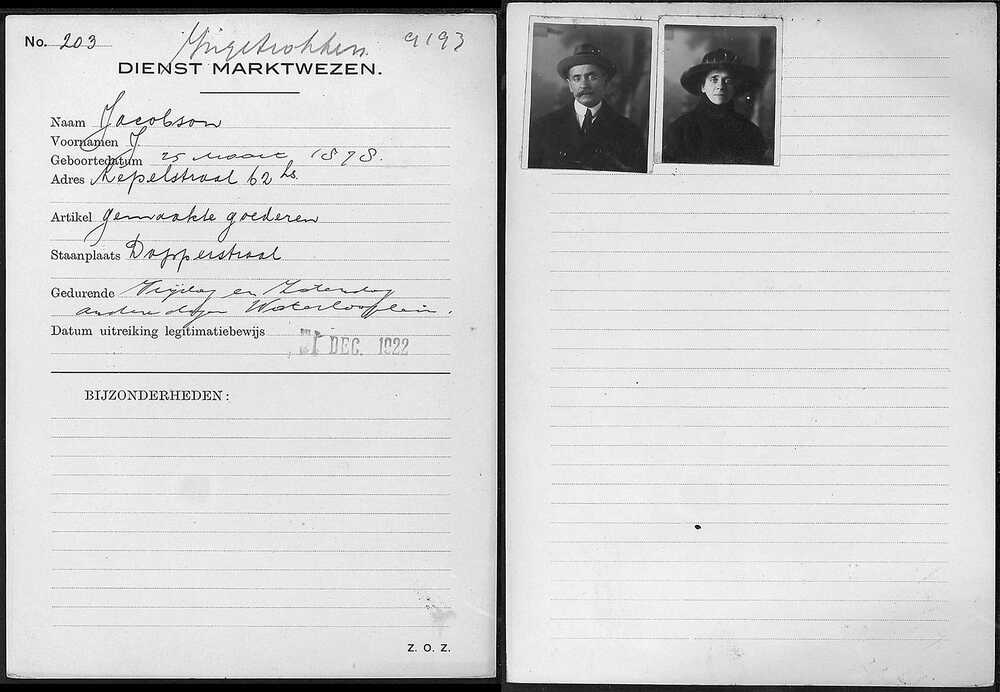 No. 203 Ingetrokken. 9193
DIENST MARKTWEZEN.
Naam Jacobson
Voornamen J.
Geboortedatum 25 Maart 1878.
Adres Repelstraat 62 hs.
Artikel gemaakte goederen
Staanplaats Dapperstraat
Gedurende Vrijdag en Zaterdag
andere dagen Waterlooplein.
Datum uitreiking legitimatiebewijs
DEC. 1922
BIJZONDERHEDEN:
Z. O. Z.